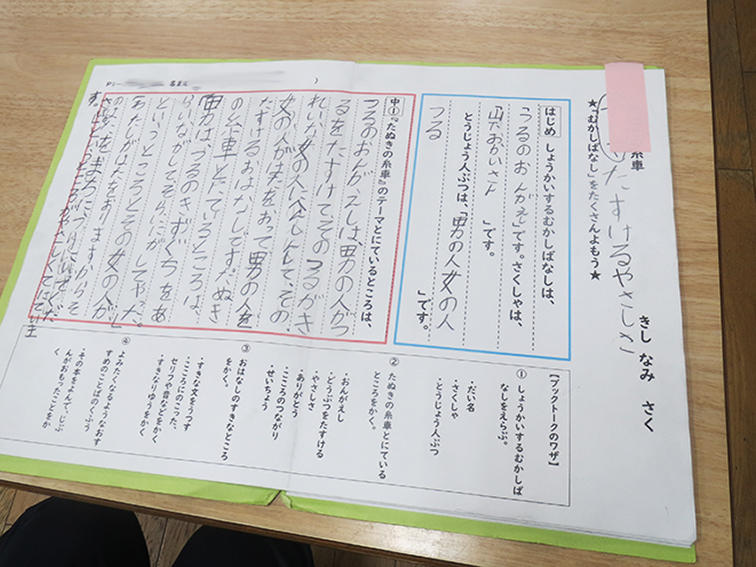 糸車
きし なみ さく
★「むかしばなし」をたくさんよもう★
たすけるやさしさ
はじめ しょうかいするむかしばなしは、
「つるのおんがえし」です。さくしゃは、
」です。
とうじょう人ぶつは、「男の人女の人
つる
」です。
中① 『たぬきの糸車』のテーマとにているところは、
つるのおんがえしは、男の人がつ
るをたすけてそのつるがき
れいな女の人にへんしんして、その、
女の人が夫をおって男の人を
たすけるおはなしです。たぬき
の糸車とにているところは、
男は、つるのきずぐちをあ
らいながしてそらににがしてやった。
というところとその女の人が「
わたしがはたをおりますからそ
【ブックトークのワザ】
① しょうかいするむかしば
なしをえらぶ。
・だい名
・さくしゃ
・とうじょう人ぶつ
② たぬきの糸車とにている
ところをかく。
・おんがえし
・どうぶつをたすける
・やさしさ
・ありがとう
・こころのつながり
・せいちょう
③ おはなしのすきなところ
をかく。
・すきな文をうつす
・こころにのこった、
セリフや音などをかく
・すきなりゆうをかく
④ よみたくなるようなおす
すめのことばのくふう
・その本をよんで、じぶ
んがおもったことをか
く